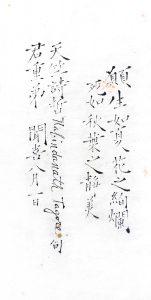 願生如夏花之絢爛
死如秋葉之靜美
天竺詩哲Rabindranath Tagore句
君重弟 聞喜八月一日